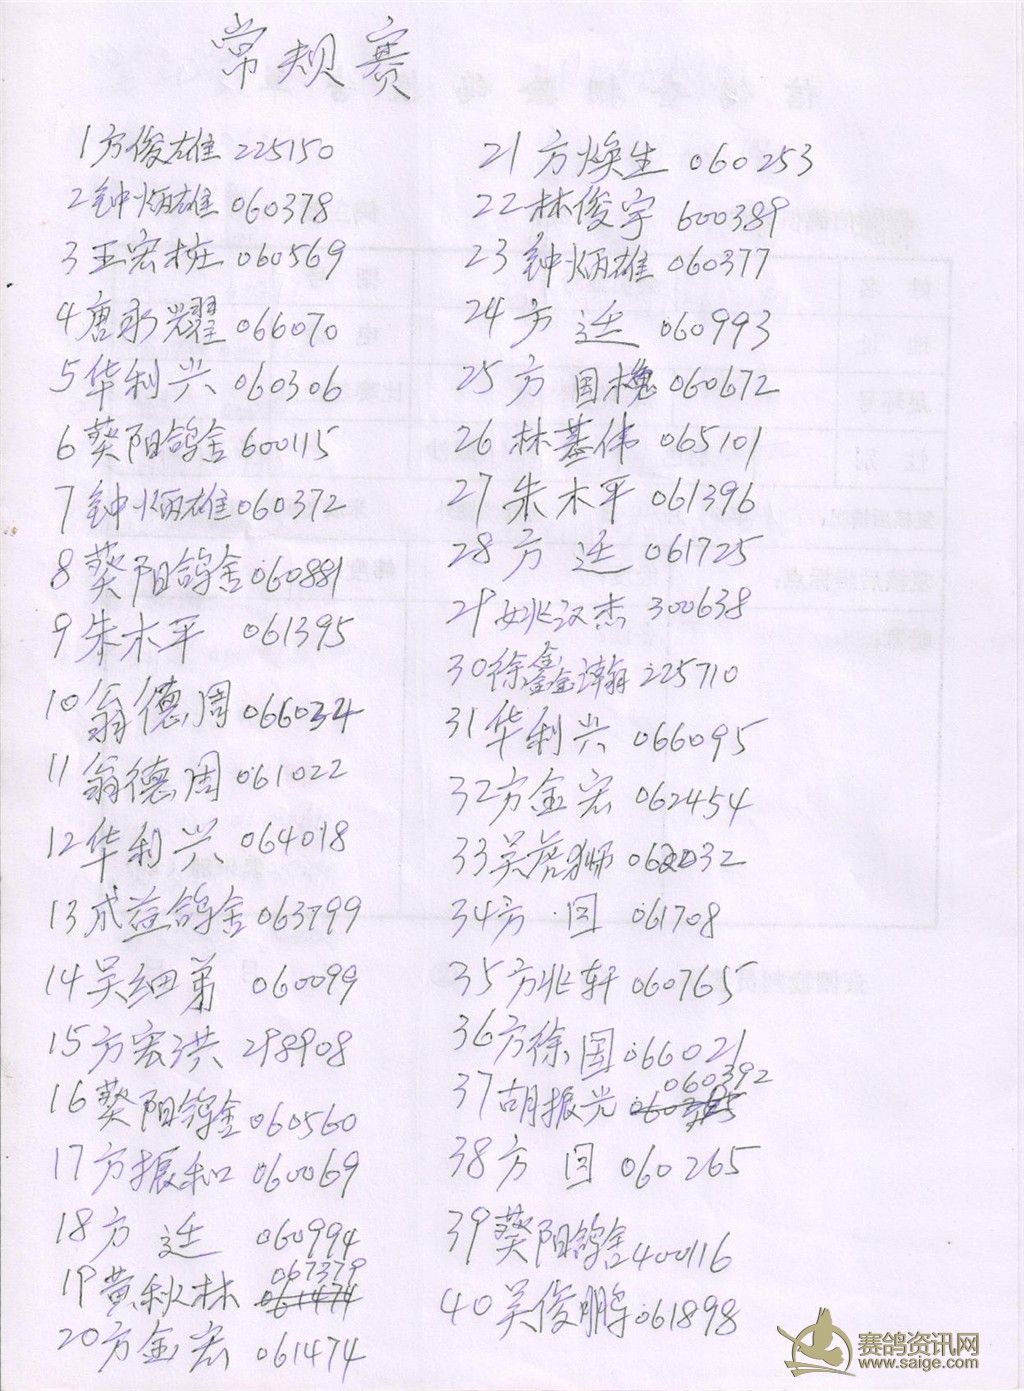 常规赛
1 方俊雄 225150
2 钟炳雄 060378
3 王宏桩 060569
4 唐永耀 066070
5 华利兴 060306
6 葵阳鸽舍 600115
7 钟炳雄 060372
8 葵阳鸽舍 060881
9 朱木平 061395
10 翁德周 066034
11 翁德周 061022
12 华利兴 064018
13 成益鸽舍 063799
14 吴细弟 060099
15 方宏洪 298908
16 葵阳鸽舍 060560
17 方振和 060069
18 方 廷 060994
19 黄秋林 067379
20 方金宏 061474
21 方焕生 060253
22 林俊宇 600389
23 钟炳雄 060377
24 方 廷 060993
25 方国槐 060672
26 林基伟 065101
27 朱木平 061396
28 方 廷 061725
29 姚汉杰 300638
30 徐鑫瀚 225710
31 华利兴 066095
32 方金宏 062454
33 吴虎狮 062032
34 方 国 061708
35 方兆轩 060765
36 方徐国 066021
37 胡振光 060392
38 方 国 060265
39 葵阳鸽舍 400116
40 吴俊鹏 061898
赛鸽资讯网
www.saige.com